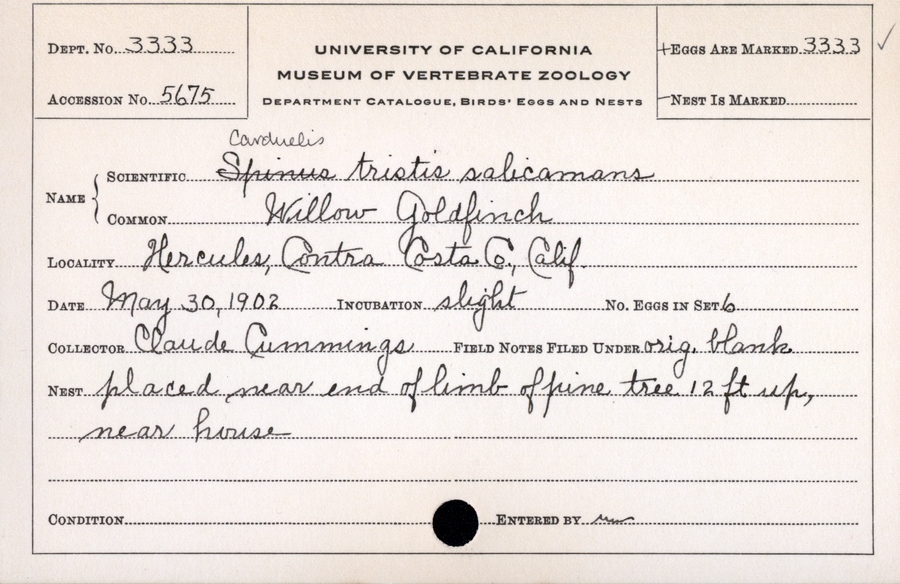 DEPT. NO. 3333
UNIVERSITY OF CALIFORNIA
MUSEUM OF VERTEBRATE ZOOLOGY
DEPARTMENT CATALOGUE, BIRDS' EGGS AND NESTS
EGGS ARE MARKED 3333 ✓
ACCESSION NO. 5675
NEST IS MARKED
Carduelis
NAME
SCIENTIFIC Spinus tristis salicamans
COMMON Willow Goldfinch
LOCALITY Hercules, Contra Costa Co., Calif.
DATE May 30, 1902 INCUBATION slight NO. EGGS IN SET 6
COLLECTOR Claude Cummings FIELD NOTES FILED UNDER orig. blank
NEST placed near end of limb of pine tree 12 ft up,
near house
CONDITION ENTERED BY